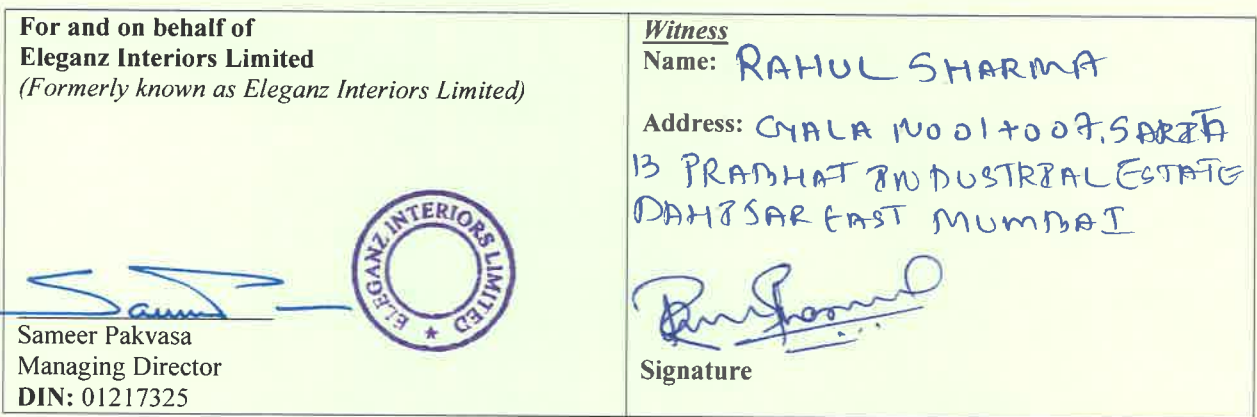 For and on behalf of
Eleganz Interiors Limited
(Formerly known as Eleganz Interiors Limited)
ELEGANZ INTERIORS LIMITED
Sameer Pakvasa
Managing Director
DIN: 01217325
Witness
Name: RAHUL SHARMA
Address: GALA NO 01 + 007, SARITA
B PRABHAT INDUSTRIAL ESTATE
DAHISAR EAST MUMBAI
Signature